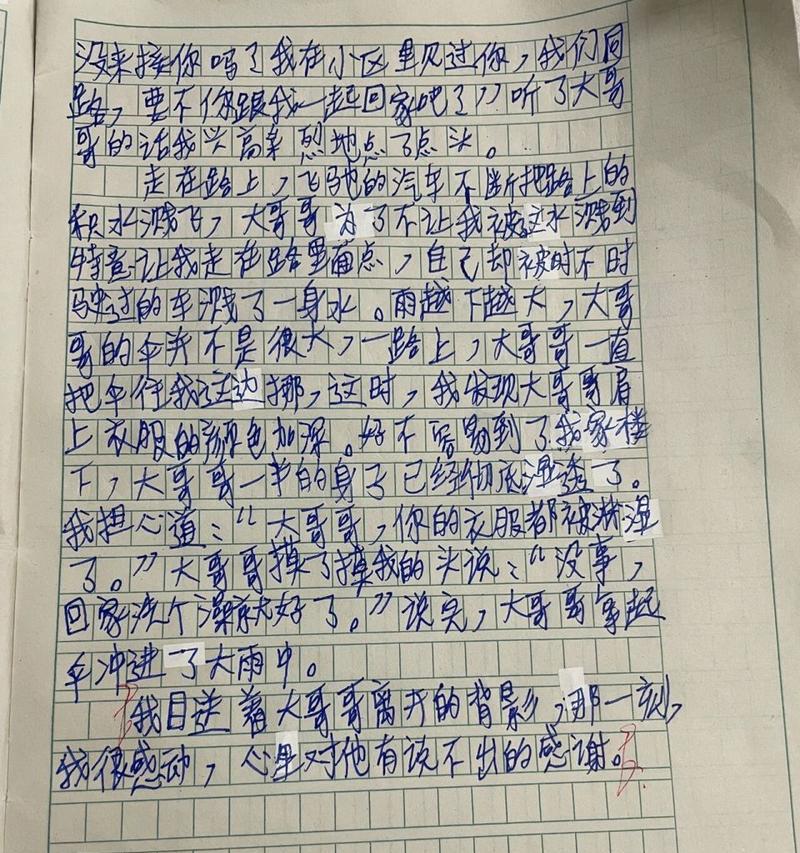 没来接你吗？我在小区里见过你，我们同
路，要不你跟我一起回家吧？”听了大哥
哥的话我兴高采烈地点了点头。
走在路上，飞驰的汽车不断把路上的
积水溅飞，大哥哥为了不让我被这水溅到
特意让我走在路里面点，自己却被时不时
驶过的车溅了一身水。雨越下越大，大哥
哥的伞并不是很大，一路上，大哥哥一直
把伞往我这边挪，这时，我发现大哥哥肩
上衣服的颜色加深。好不容易到了我家楼
下，大哥哥一半的身子已经彻底湿透了。
我担心道：“大哥哥，你的衣服都被淋湿
了。”大哥哥摸了摸我的头说：“没事，
回家洗个澡就好了。”说完，大哥哥拿起
伞冲进了大雨中。
我目送着大哥哥离开的背影，那一刻，
我很感动，心里对他有说不出的感谢。